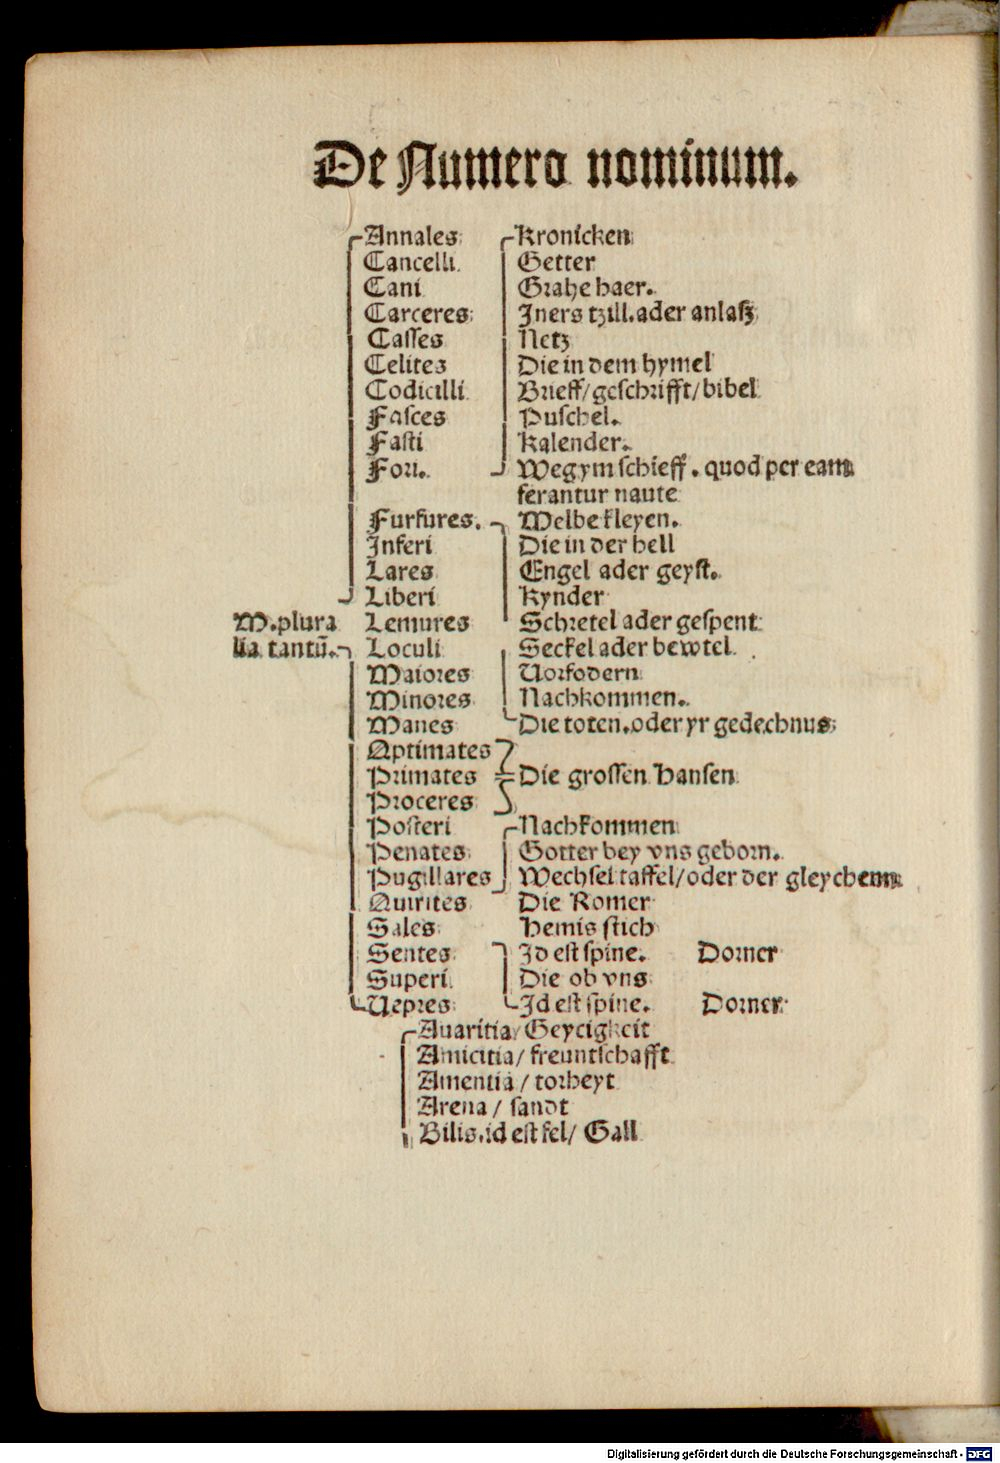 De Numero nominum.
Annales Kronicken
Cancelli. Getter
Cani Grahe haer.
Carceres Jners tzill. ader anlaſz
Caſſes Netz
Celites Die in dem hymel
Codicilli Brieff/geſchrifft/bibel
Faſces Puſchel.
Faſti Kalender.
Fori. Weg ym ſchieff. quod per eam
ferantur naute
Furfures. Melbe kleyen.
Inferi Die in der hell
Lares Engel ader geyſt.
Liberi Kynder
M.plura Lemures Schretel ader geſpent
lia tantū. Loculi Seckel ader bewtel.
Maiores Uorfodern
Minores Nachkommen.
Manes Die toten.oder yr gedechnus
Optimates
Primates Die groſſen Hanſen
Proceres
Poſteri Nachkommen
Penates Gotter bey vns geborn.
Pugillares Wechſel taffel/oder der gleychenn
Quirites Die Romer
Sales Hemis ſtich
Sentes Id eſt ſpine. Dorner
Superi Die ob vns
Uepres Id eſt ſpine. Dorner
Auaritia/Geycigkeit
Amicitia/ freuntſchafft
Amentia / torheyt
Arena / ſandt
Bilis.id eſt fel/ Gall
Digitalisierung gefördert durch die Deutsche Forschungsgemeinschaft - DFG